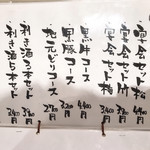 宴会セット松 4,400円
宴会セット竹
宴会セット梅 3,400円
黒牛コース 4,400円
黒豚コース 3,200円
地元どりコース 2,700円
利き酒3本セット
利き酒5本セット